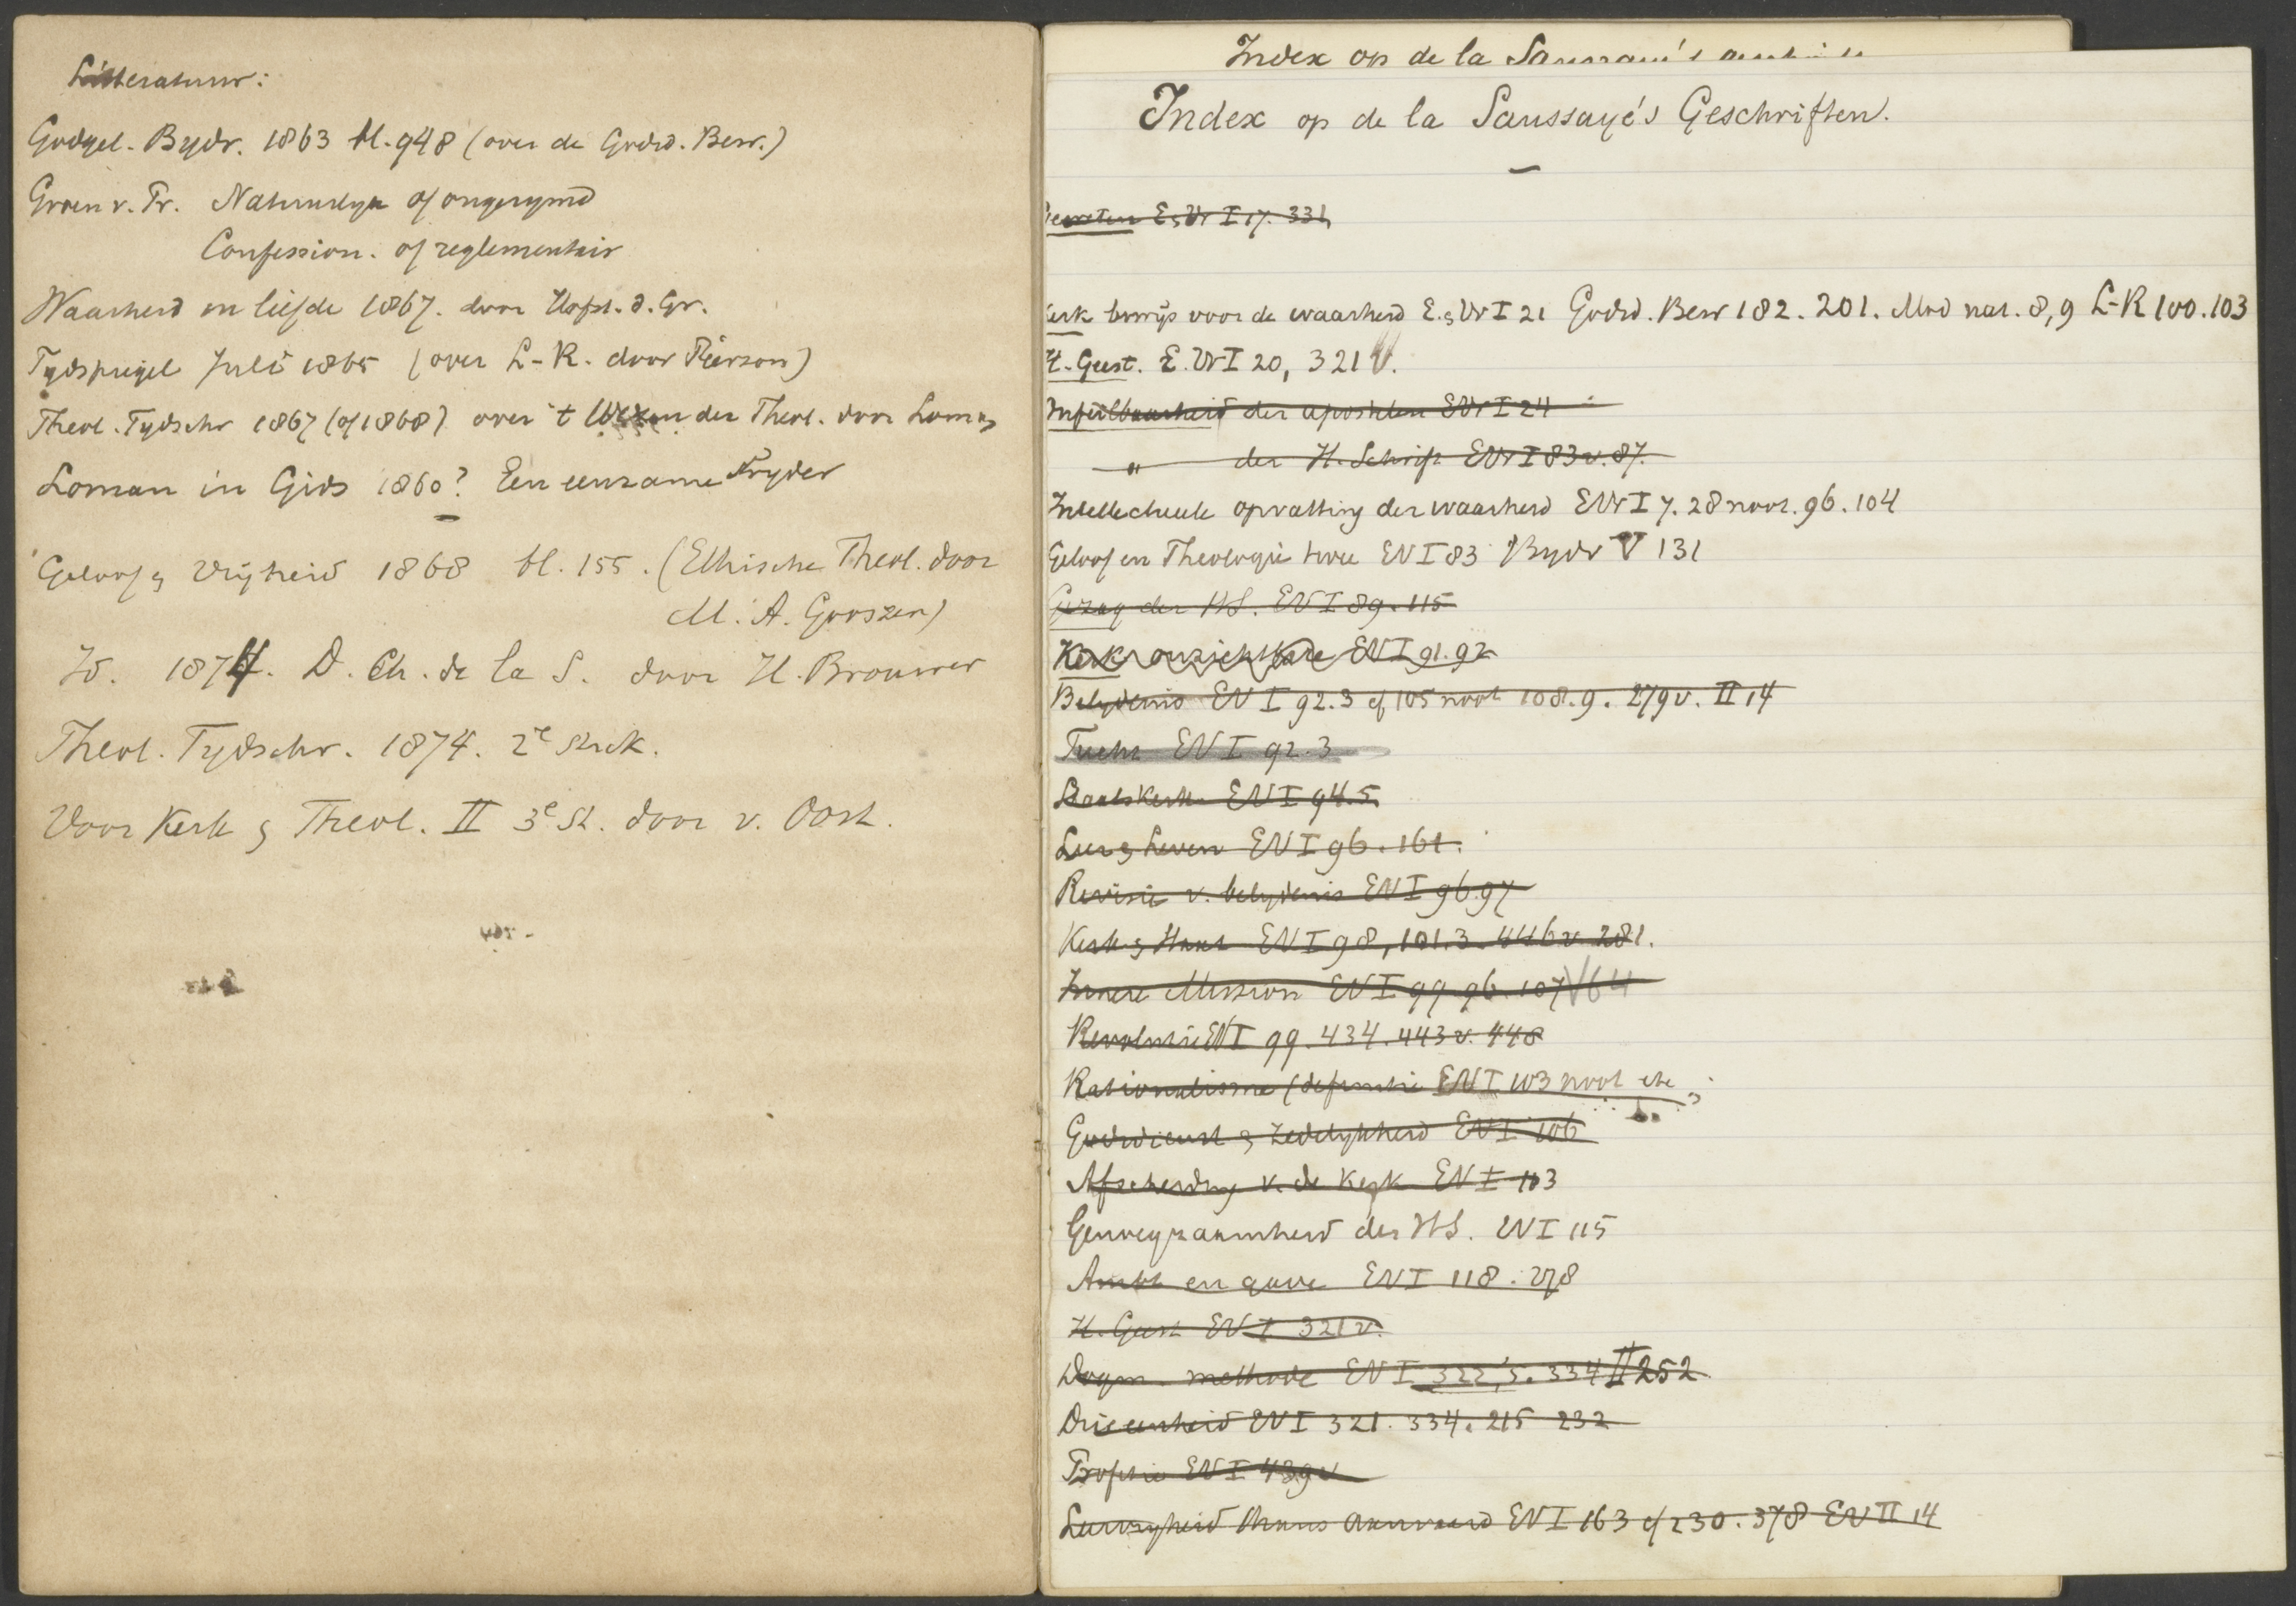 Litteratuur:
Godgel. Bydr. 1863 bl. 948 (over de Godsd. Bew.)
Groen v. Pr. Natuurlyk of ongerymd
Confession. of reglementair
Waarheid en liefde 1867. door Hofst. d. Gr.
Tydspiegel Juli 1865 (over L-R. door Pierson)
Theol. Tydschr 1867 (of 1868) over 't Wezen der Theol. door Loman
Loman in Gids 1860? Een eenzame Stryder
Geloof & Vrijheid 1868 bl. 155. (Ethische Theol. door
M. A. Gooszen)
Id. 1874. D. Ch. de la S. door H. Brouwer
Theol. Tydschr. 1874. 2e Stuk.
Voor Kerk & Theol. II 3e St. door v. Oost.
Index op de la Saussaye's
Index op de la Saussaye's Geschriften.
E&Vr I 17. 331
Kerk bewijs voor de waarheid E.&Vr I 21 Godsd. Bew 182. 201. Mod nat. 8,9 L-R 100.103
H. Geest. E. Vr I 20, 321 V.
Onfeilbaarheid der apostelen EVr I 24
" der H. Schrift EVr I 83 v. 87.
Intellectueele opvatting der waarheid EVr I 7. 28 noot. 96. 104
Geloof en Theologie twee EV I 83 Bydr V 131
Gezag der HS. EV I 89. 115
Kerk onzichtbare EV I 91.92
Belydenis EV I 92.3 cf 105 noot 108.9. 279 v. II 14
Tucht EV I 92.3
Staatskerk EV I 94.5
Leer & Leven EV I 96. 161.
Revisie v. belydenis EV I 96.97
Kerk & Staat EV I 98, 101.3. 446 v 281.
Innere Mission EV I 99 96. 107 V 64
Revolutie EV I 99. 434. 443 v. 448
Rationalisme (definitie EV I 103 noot
Godsdienst & zedelykheid EV I 106
Afscheiding v. de Kerk EV I 113
Genoegzaamheid der HS. EV I 115
Ambt en gave EV I 118. 278
H. Geest EV I 321 v.
Dogm. methode EV I 322, 5. 334 II 252
Drieeenheid EV I 321. 334. 215 232
Profetie EV I 439 v
Leervryheid EV I 163 cf 230. 378 EV II 14